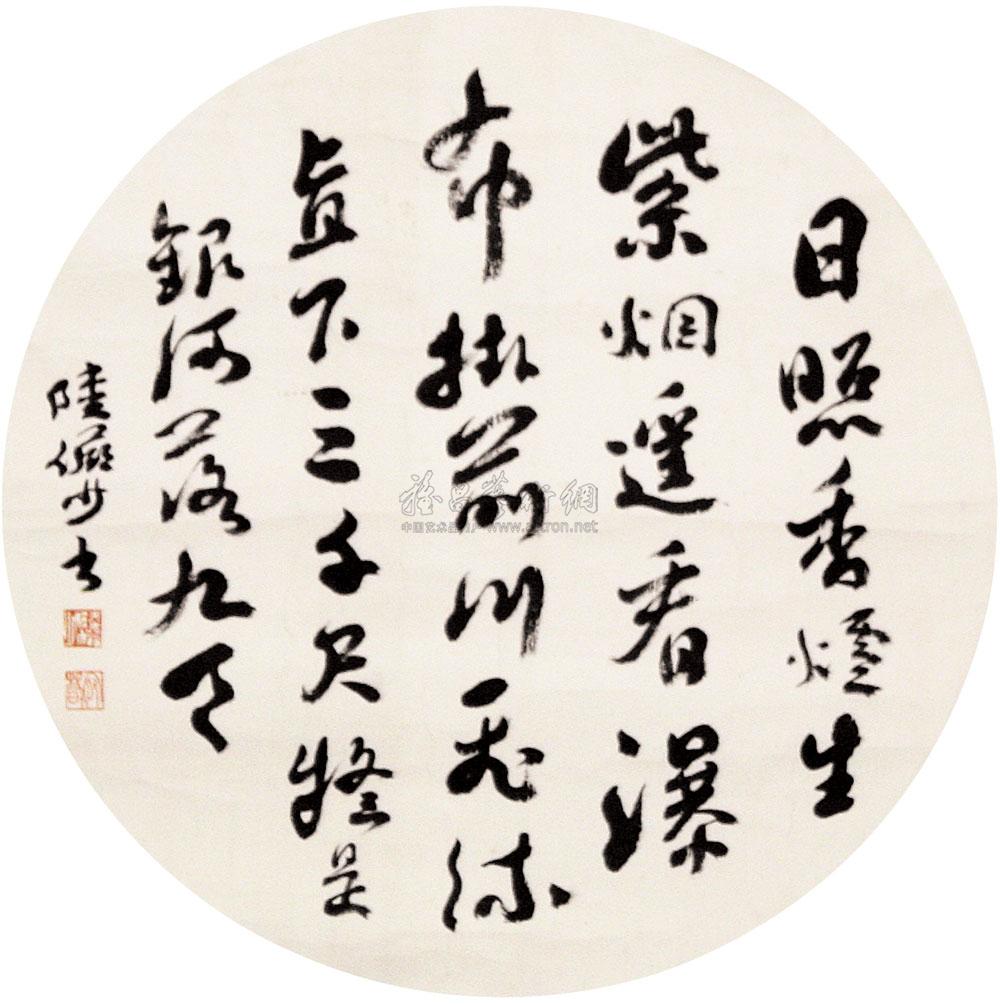 日照香爐生
紫烟遥看瀑
布掛前川飛流
直下三千尺疑是
銀河落九天
陸儼少书
雅昌藝術網
www.artron.net